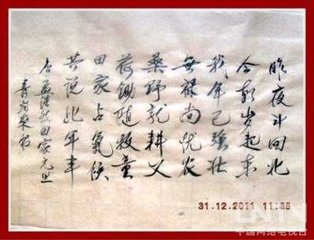 昨夜斗回北
今朝岁起东
我年已强壮
無禄尚忧农
桑野就耕父
荷锄随牧童
田家占氣候
共说此年丰
孟浩然田家元旦
31.12.2011 11:35
CNTV
中国网络电视台